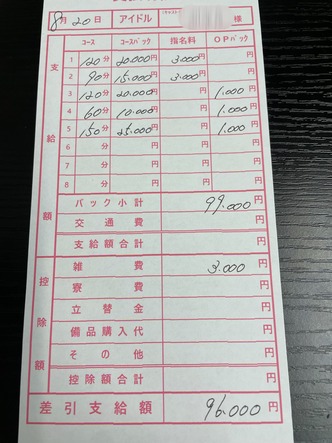 8月20日 アイドル 様
コース コースバック 指名料 OPバック
支給額
1 120分 20.000円 3.000円 円
2 90分 15.000円 3.000円 円
3 120分 20.000円 円 1.000円
4 60分 10.000円 円 1.000円
5 150分 25.000円 円 1.000円
6 分 円 円 円
7 分 円 円 円
8 分 円 円 円
バック小計 99.000円
交通費 円
支給額合計 円
控除額
雑費 3.000円
寮費 円
立替金 円
備品購入代 円
その他 円
控除額合計 円
差引支給額 96.000円